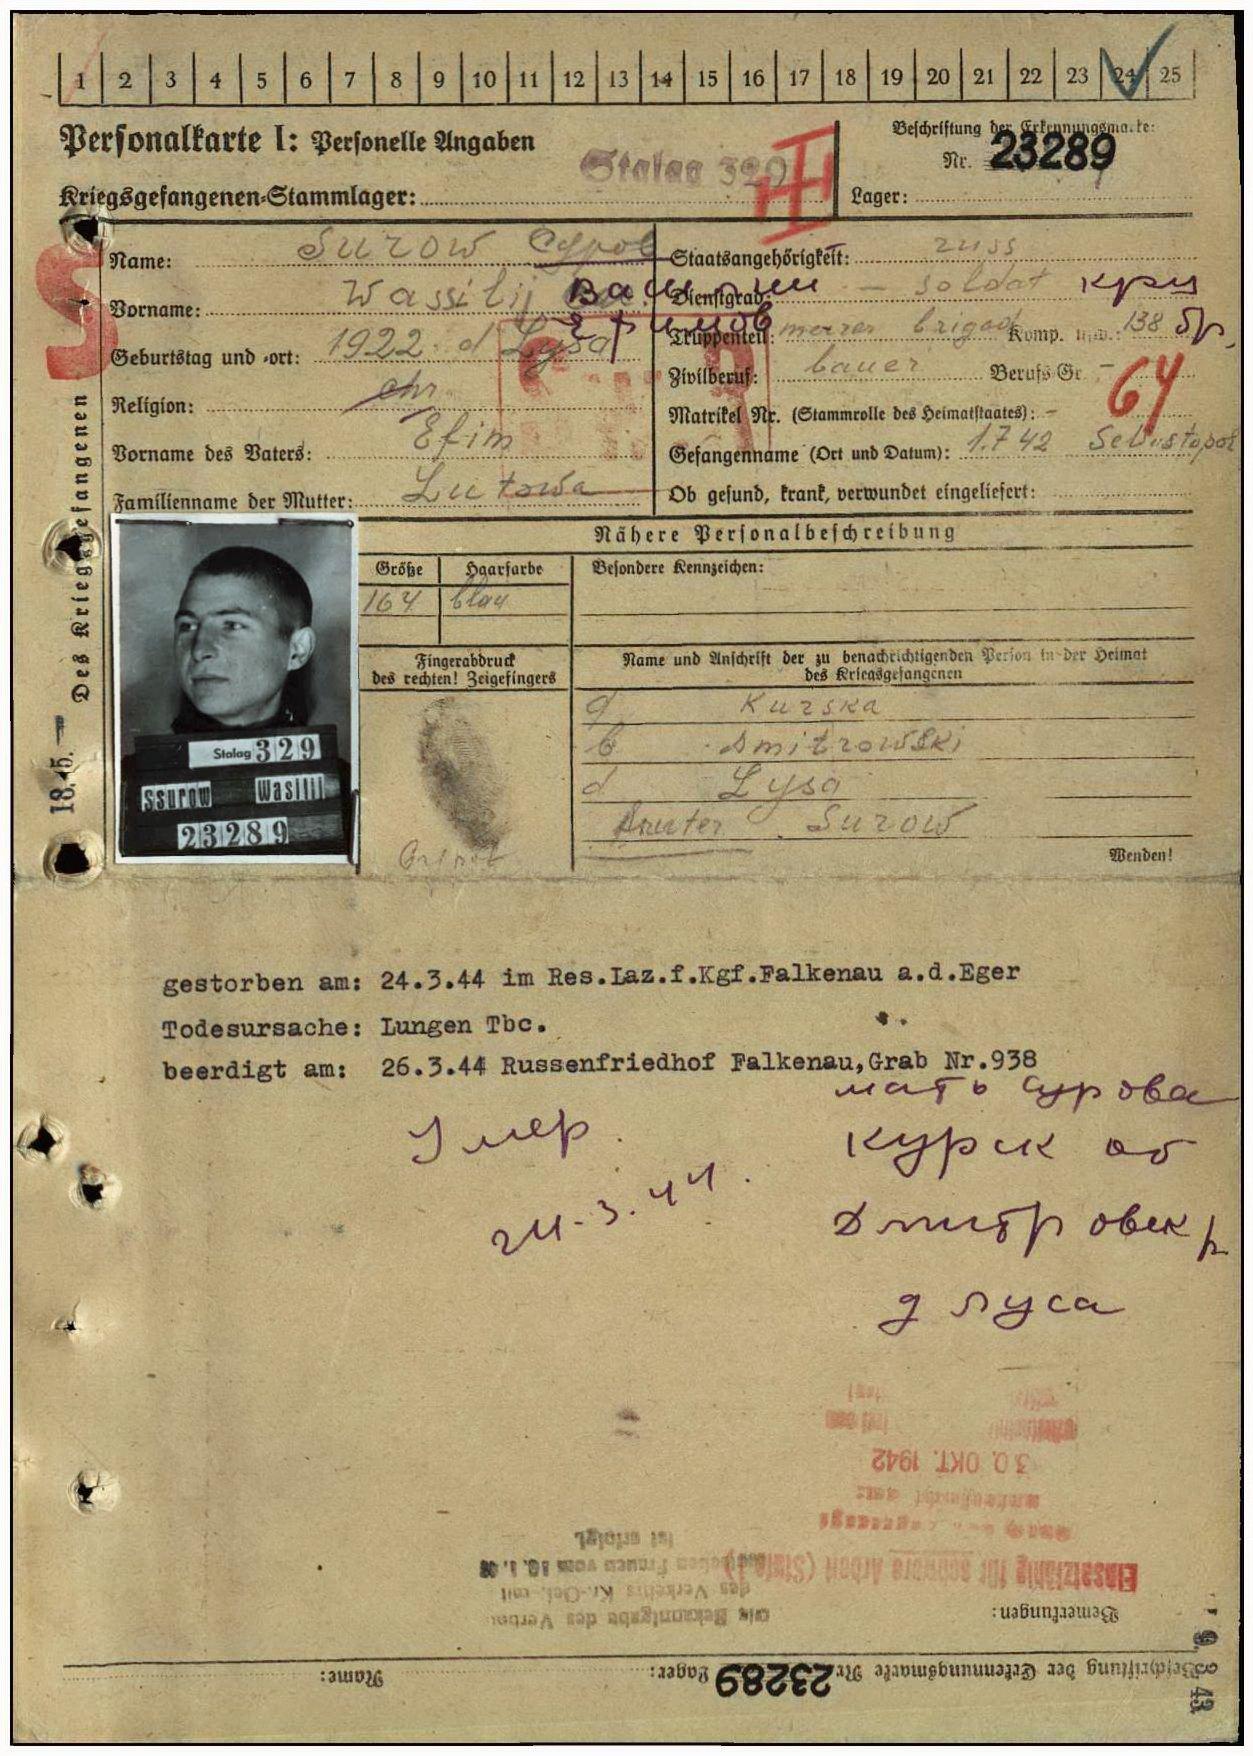 1 2 3 4 5 6 7 8 9 10 11 12 13 14 15 16 17 18 19 20 21 22 23 24 25
Personalkarte I: Personelle Angaben
Kriegsgefangenen-Stammlager: Stalag 329
III
Beschriftung der Erkennungsmarke:
Nr. 23289
Lager:
S
Des Kriegsgefangenen
Name: Surow Суров
Vorname: Wassilij Василий
Ефимов
Geburtstag und -ort: 1922 d Lysa
Religion: chr
Vorname des Vaters: Efim
Familienname der Mutter: Lutowa
Staatsangehörigkeit: russ
Dienstgrad: – soldat
Truppenteil: brigad Komp. usw.: 138 бр.
Zivilberuf: bauer Berufs-Gr. –
64
Matrikel Nr. (Stammrolle des Heimatstaates): -
Gefangenname (Ort und Datum): 1.7 42 Sewastopol
Ob gesund, krank, verwundet eingeliefert:
Nähere Personalbeschreibung
Größe Haarfarbe
164 blau
Besondere Kennzeichen:
Fingerabdruck
des rechten! Zeigefingers
Name und Anschrift der zu benachrichtigenden Person in der Heimat
des Kriegsgefangenen
Kurska
Dmitrowski
d Lysa
Surow
Wenden!
Stalag 329
Ssurow Wasilij
23289
gestorben am: 24.3.44 im Res.Laz.f.Kgf.Falkenau a.d.Eger
Todesursache: Lungen Tbc.
beerdigt am: 26.3.44 Russenfriedhof Falkenau,Grab Nr.938
мать Сурова
Курск об
Дмитровск р
д луса
Умер.
24.3.44.
30. OKT. 1942
Einsatzfähig für schwere Arbeit (Stufe I)
Bemerkungen:
Die Bekanntgabe des Verbots
des Verkehrs Kr.-Gef. mit
deutschen Frauen vom
ist erfolgt
Beschriftung der Erkennungsmarke Nr. 23289 Lager: Name: